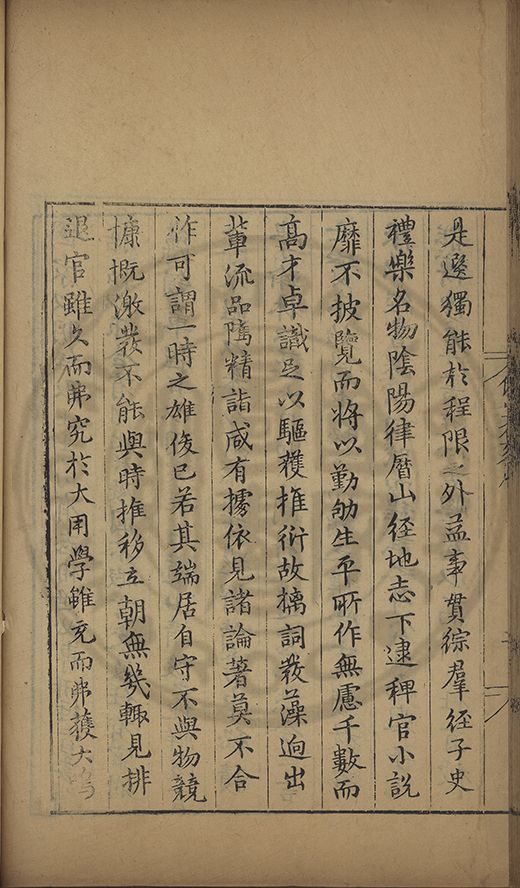 是選獨能於程限之外益事貫綜羣經子史
禮樂名物陰陽律曆山經地志下逮稗官小說
靡不披覽而將以勤劬生平所作無慮千數而
高才卓識足以驅獲推衍故摛詞發藻逈出
軰流品隲精詣咸有據依見諸論著莫不合
作可謂一時之雄俊已若其端居自守不與物競
慷慨激發不能與時推移立朝無幾輙見排
退官雖久而弗究於大用學雖充而弗獲大鳴